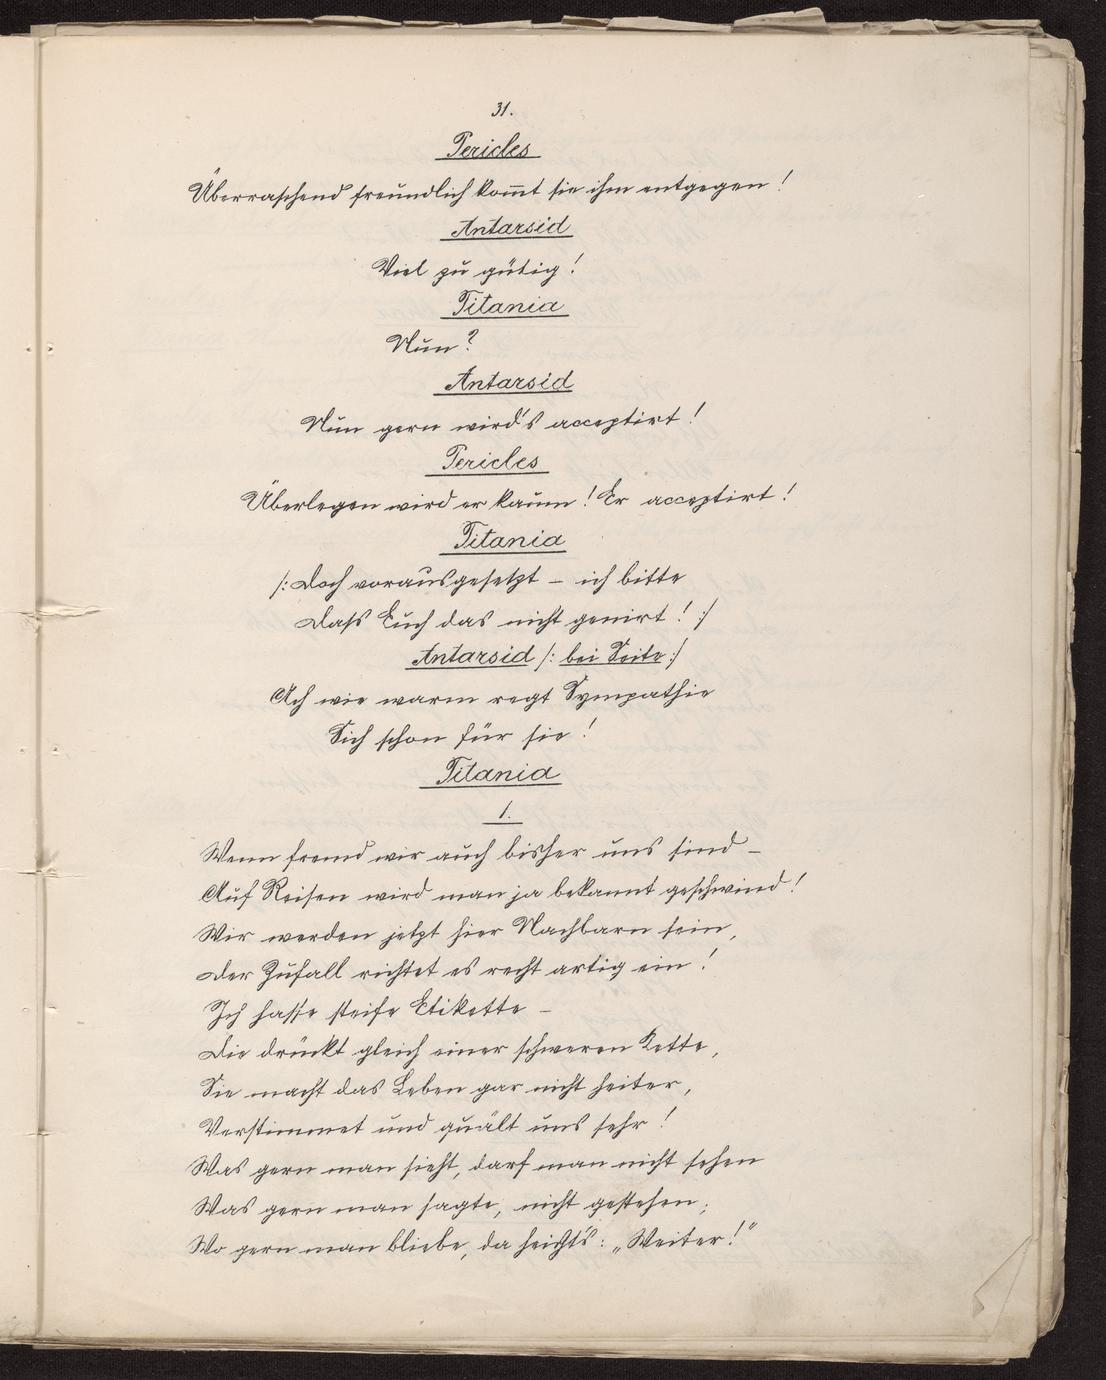 31.
Pericles
Überraschend freundlich kom̄t sie ihm entgegen!
Antarsid
Viel zu gütig!
Titania
Nun?
Antarsid
Nun gern wird's acceptirt!
Pericles
Überlegen wird er kaum! Er acceptirt!
Titania
/: Doch vorausgesetzt – ich bitte
Daſs Euch das nicht genirt! :/
Antarsid /: bei Seite :/
Ach wie warm regt Sympathie
Sich schon für sie!
Titania
1.
Wenn fremd wir auch bisher uns sind –
Auf Reisen wird man ja bekannt geschwind!
Wir werden jetzt hier Nachbarn sein,
Der Zufall richtet es recht artig ein!
Ich hasse steife Etikette –
Die drückt gleich einer schweren Kette,
Sie macht das Leben gar nicht heiter,
Verstimmet und quält uns sehr!
Was gern man sieht, darf man nicht sehen
Was gern man sagte, nicht gestehen;
Wo gern man bliebe, da heißt's: „Weiter!"